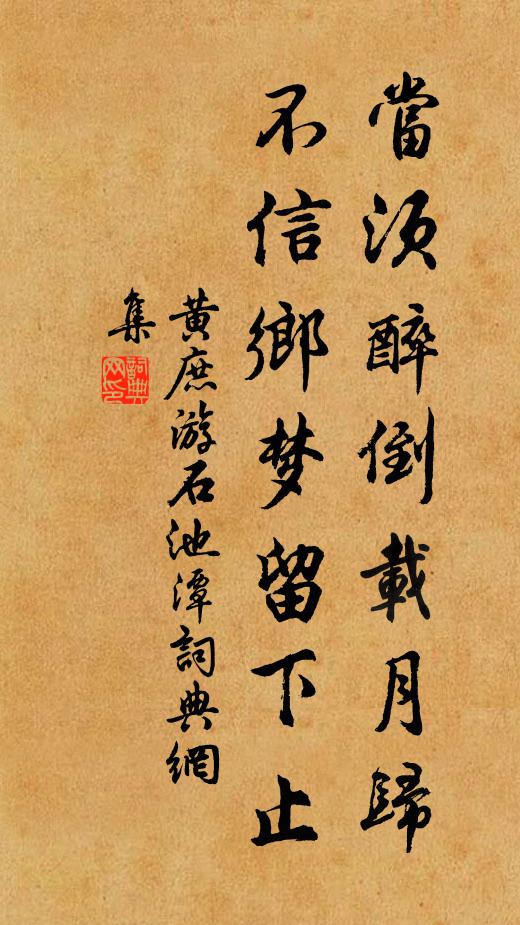 當須醉倒載月歸
不信鄉梦留下止
黄庶游石池潭詞典網
集
詞典
网印